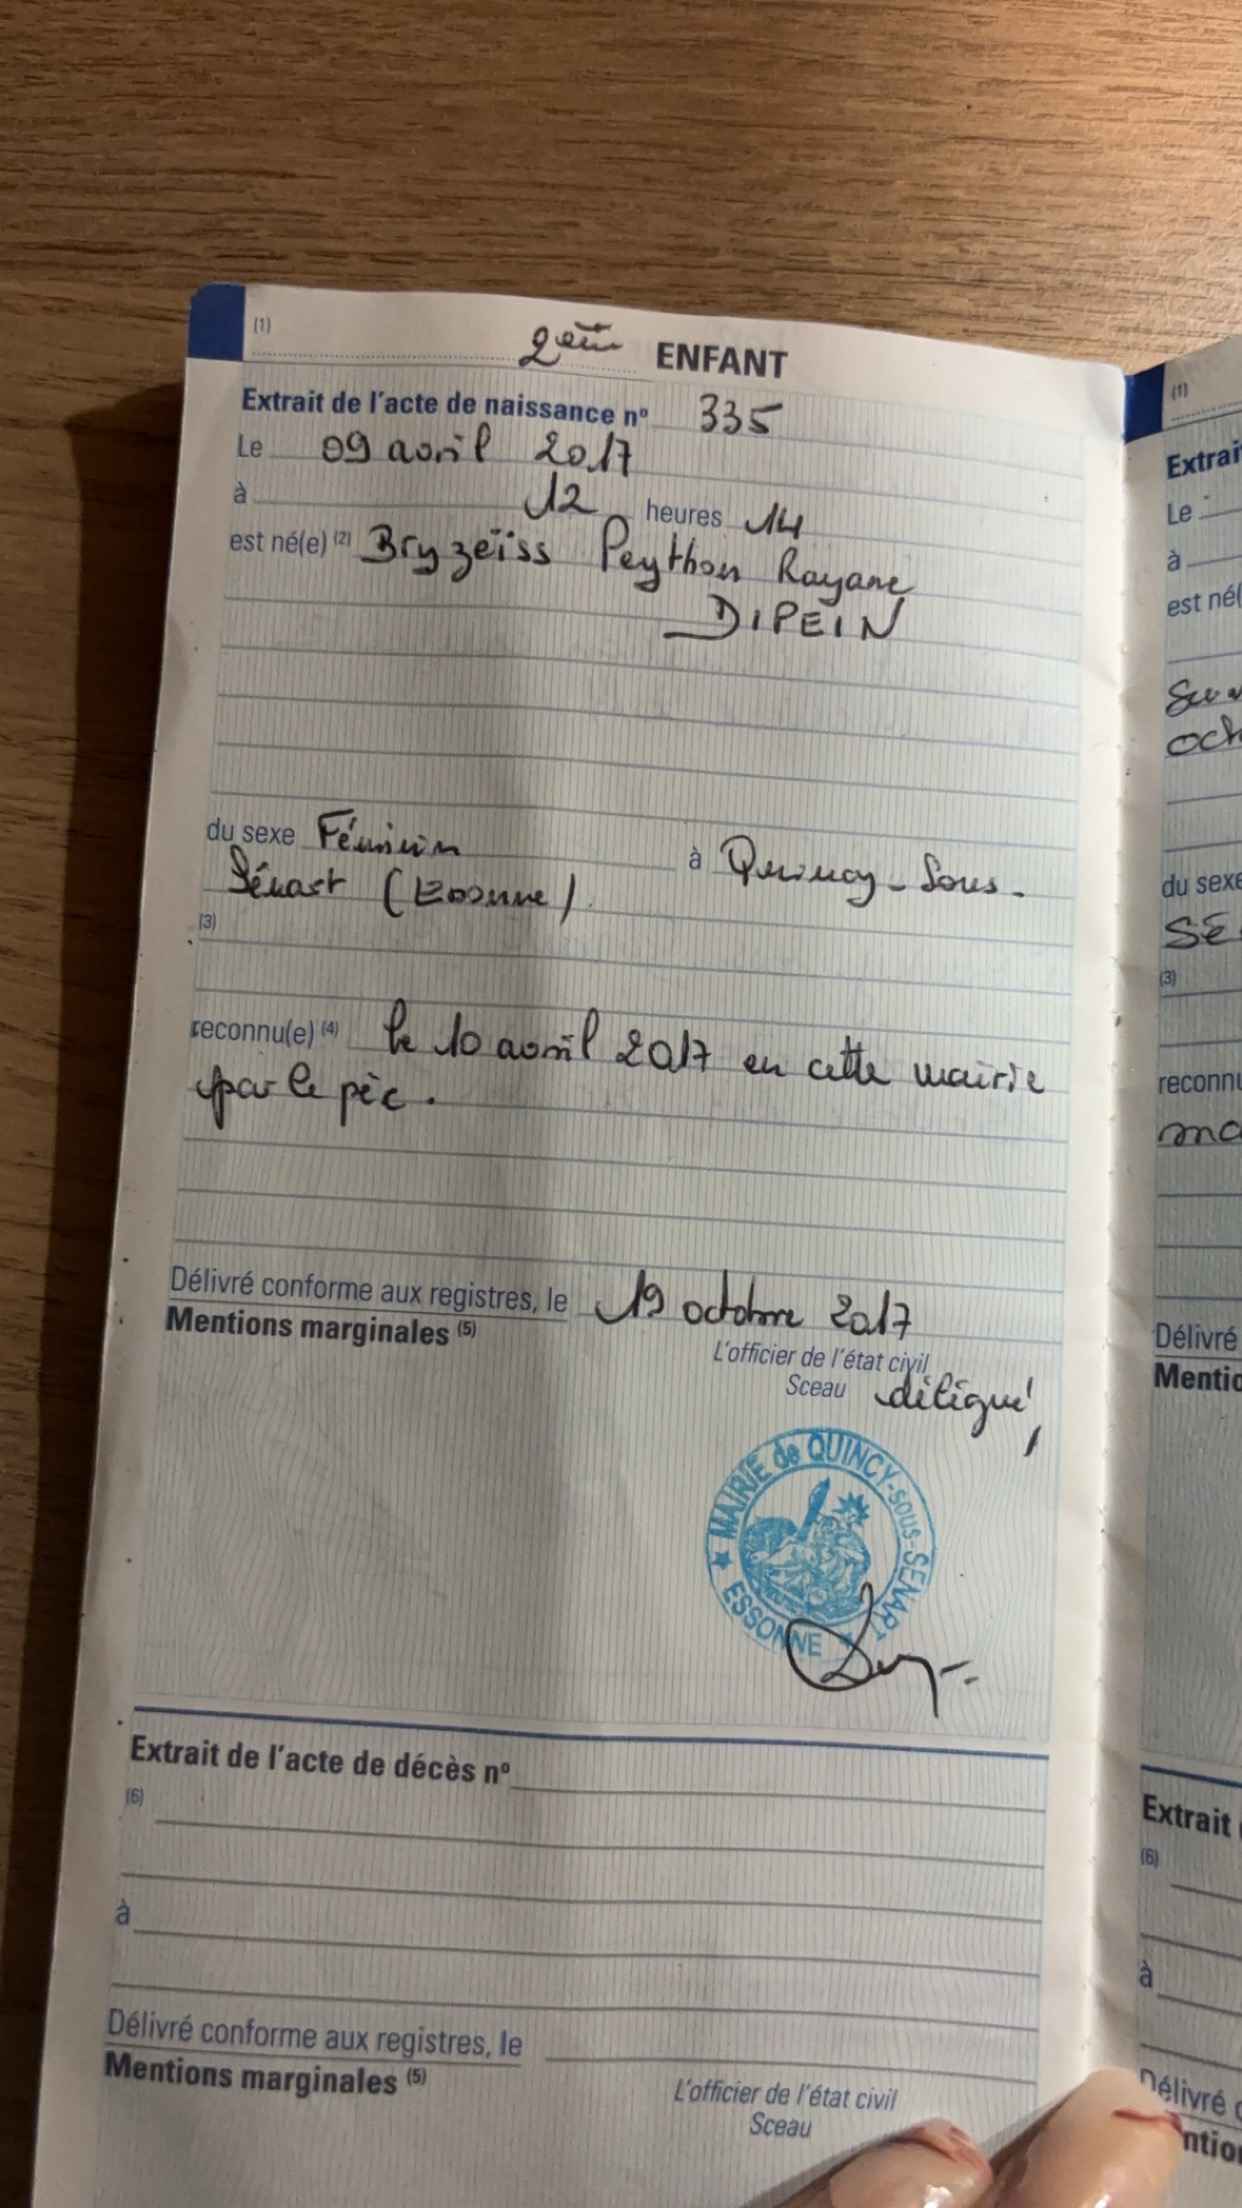 (1) 2ème ENFANT
Extrait de l'acte de naissance nº 335
Le 09 avril 2017
à 12 heures 14
est né(e) (2) Bryzeïss Peython Rayane
DIPEIN
du sexe Féminin à Quincy-Sous-
Sénart (Essonne)
(3)
reconnu(e) (4) le 10 avril 2017 en cette mairie
par le père.
Délivré conforme aux registres, le 19 octobre 2017
Mentions marginales (5)
L'officier de l'état civil
Sceau délégué,
MAIRIE de QUINCY-sous-SENART
ESSONNE
Extrait de l'acte de décès nº
(6)
à
Délivré conforme aux registres, le
Mentions marginales (5)
L'officier de l'état civil
Sceau
(1)
Extrai
Le
à
est né(
och
du sexe
SÉ
(3)
reconnu
ma
Délivré
Mentio
Extrait
(6)
à
Délivré c
ntion